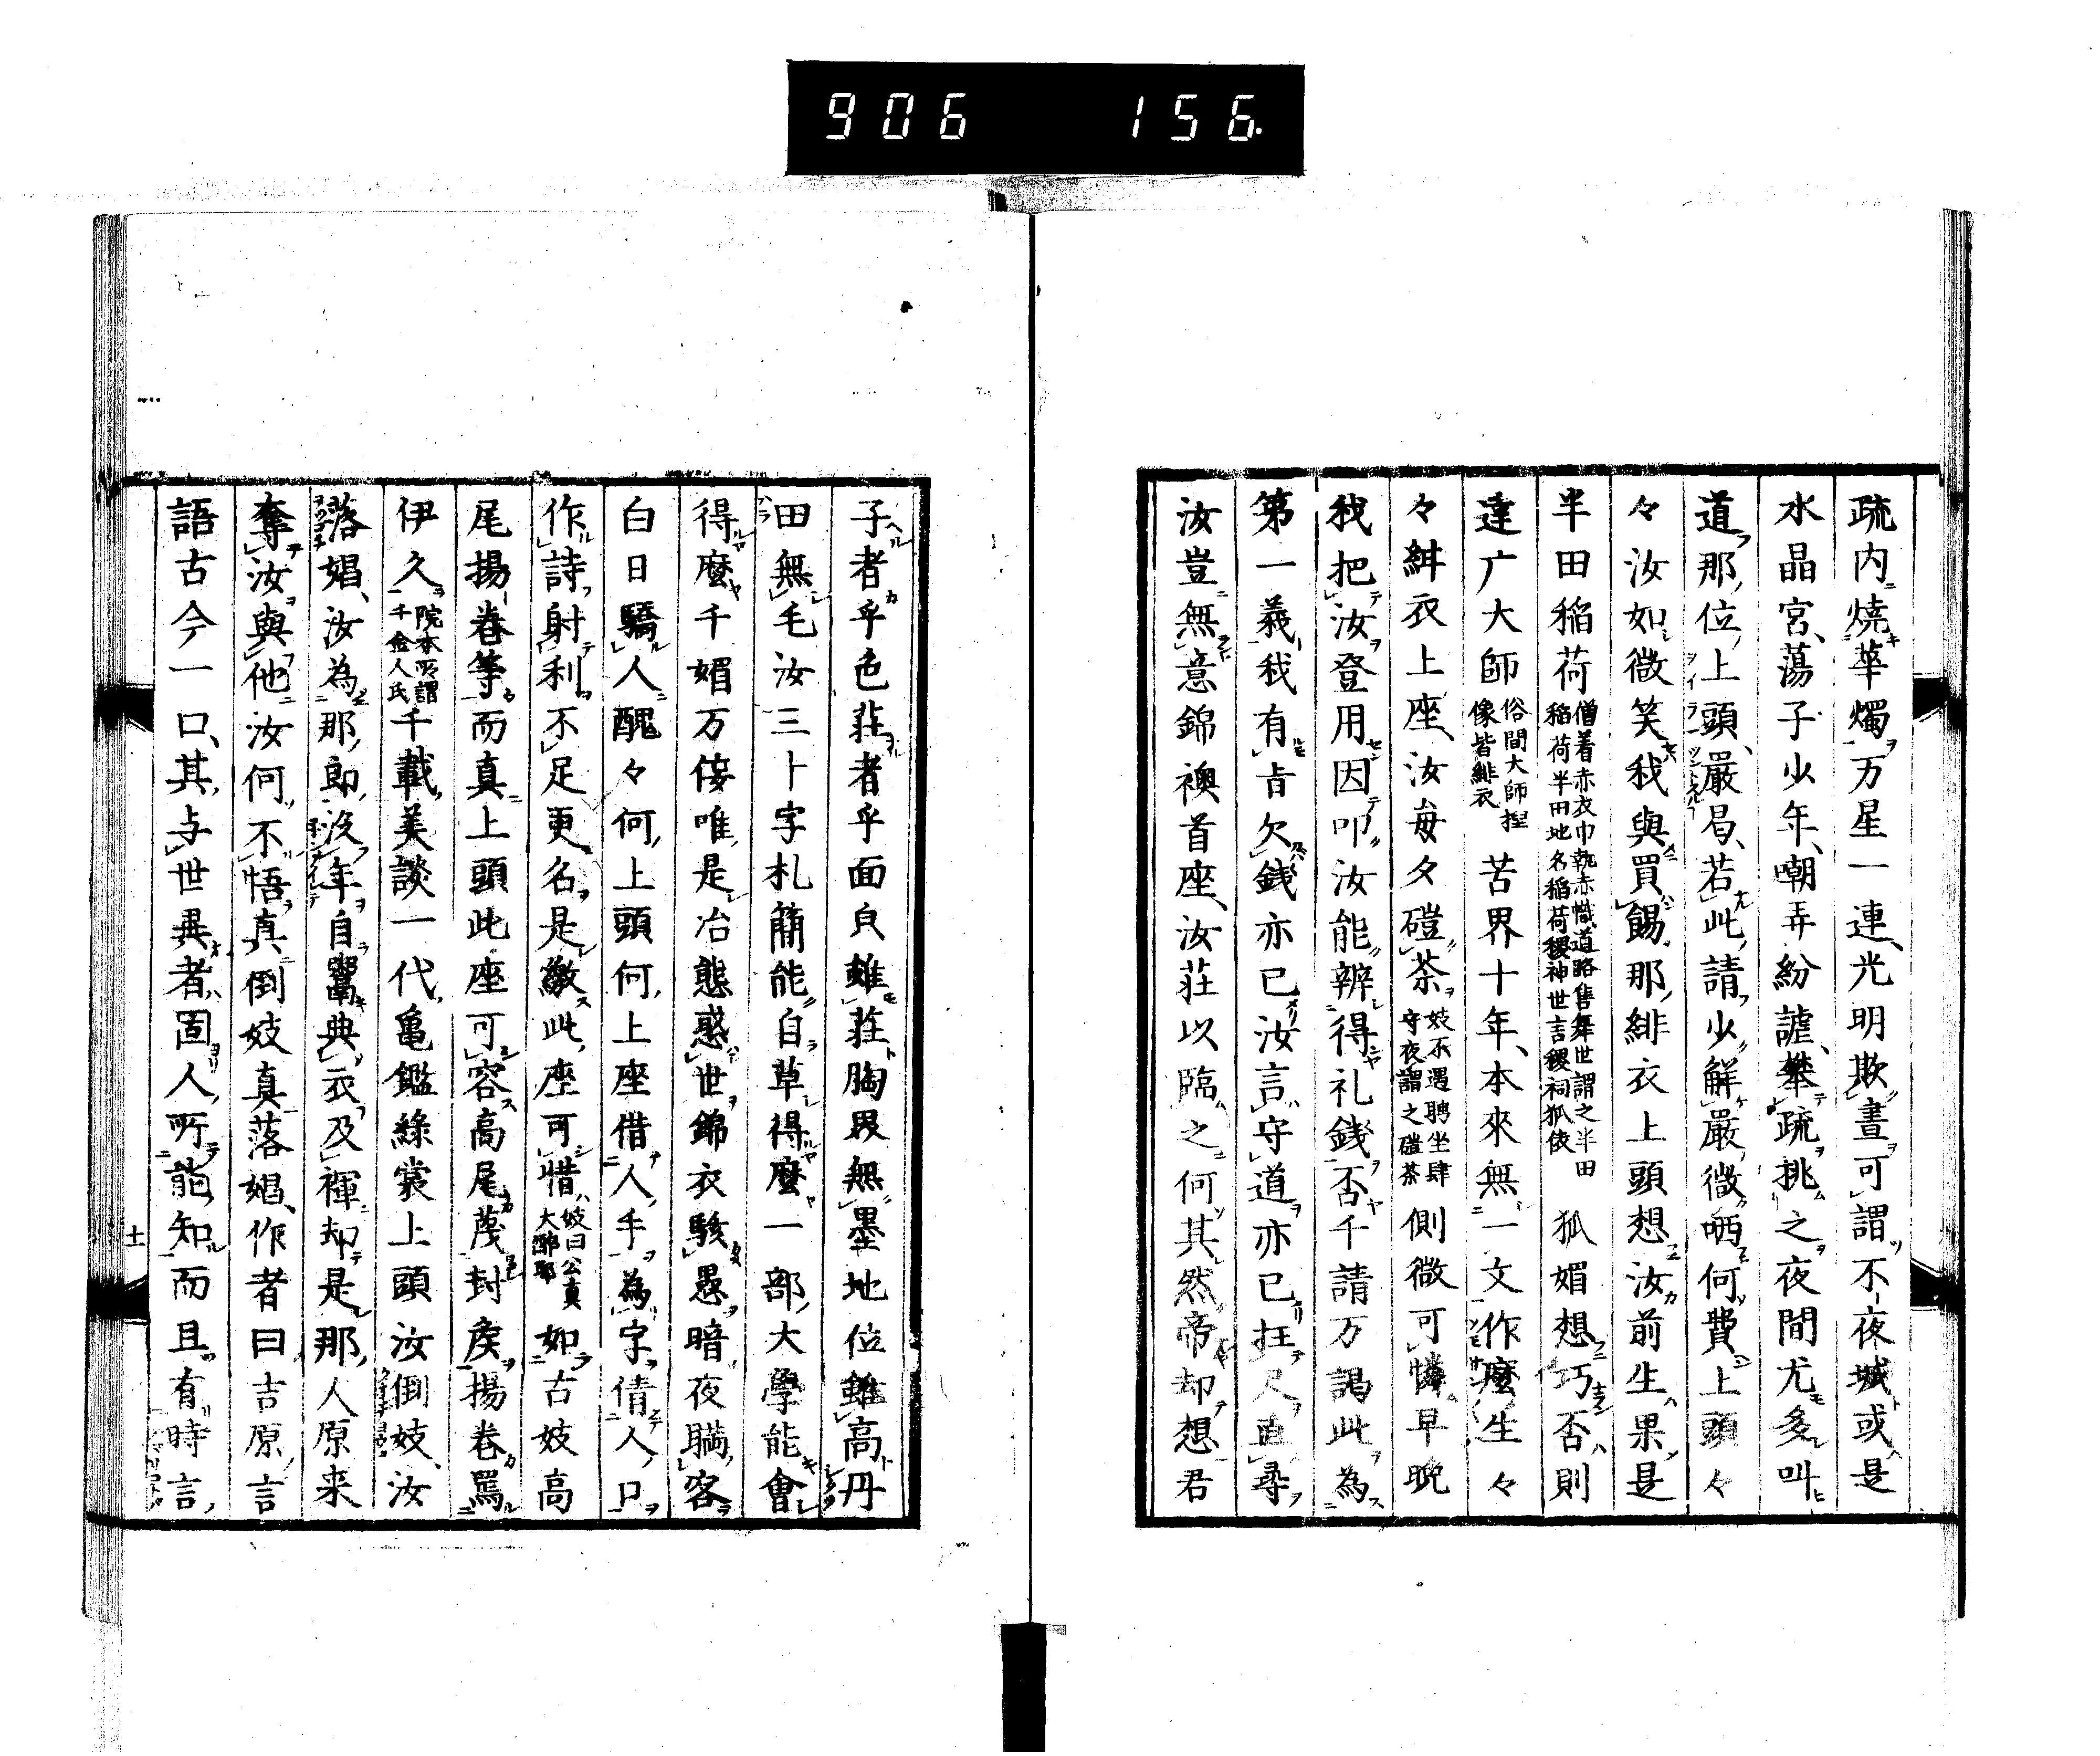 906 156.
疏内燒華燭万星一連、光明欺晝可謂不夜城或是
水晶宮、蕩子少年、嘲弄紛謔、攀疏挑之夜間尤多叫
道那位上頭、嚴局、若此請少解嚴微哂何費上頭々
々汝如微笑我與買餳那緋衣上頭想汝前生果是
半田稲荷僧着赤衣巾執赤幟道路售舞世謂之半田稲荷半田地名稲荷稷神世言稷祠狐依狐媚想巧否則
達广大師俗間大師捏像皆緋衣苦界十年、本來無一文作麼生々
々緋衣上座、汝毎夕磑茶妓不遇聘坐肆守夜謂之磑茶側微可憐早晩
我把汝登用因叩汝能辨得礼銭否千請万謁此為
第一義我有旨欠銭亦已汝言守道亦已枉尺直尋
汝豈無意錦襖首座、汝莊以臨之何其然帝却想君
子者乎色莊者乎面皃雖莊胸界無墨地位雖高丹
田無毛汝三卜字札簡能自草得麼一部大學能會
得麼千媚万佞唯是冶態惑世錦衣駭愚暗夜瞞客
白日驕人醜々何上頭何上座借人手為字倩人口
作詩射利不足更名是敬此座可惜妓曰公真大醉耶如古妓高
尾揚巻等而真上頭此座可容高尾蔑封矦揚巻罵
伊久院本所謂千金人氏千載美談一代亀鑑緣裳上頭汝倒妓、汝
落娼、汝為那郎没年自鬻典衣及褌却是那人原来
奪汝與他汝何不悟真倒妓真落娼、作者曰吉原言
語古今一口、其与世異者固人所能知而且有時言
十一